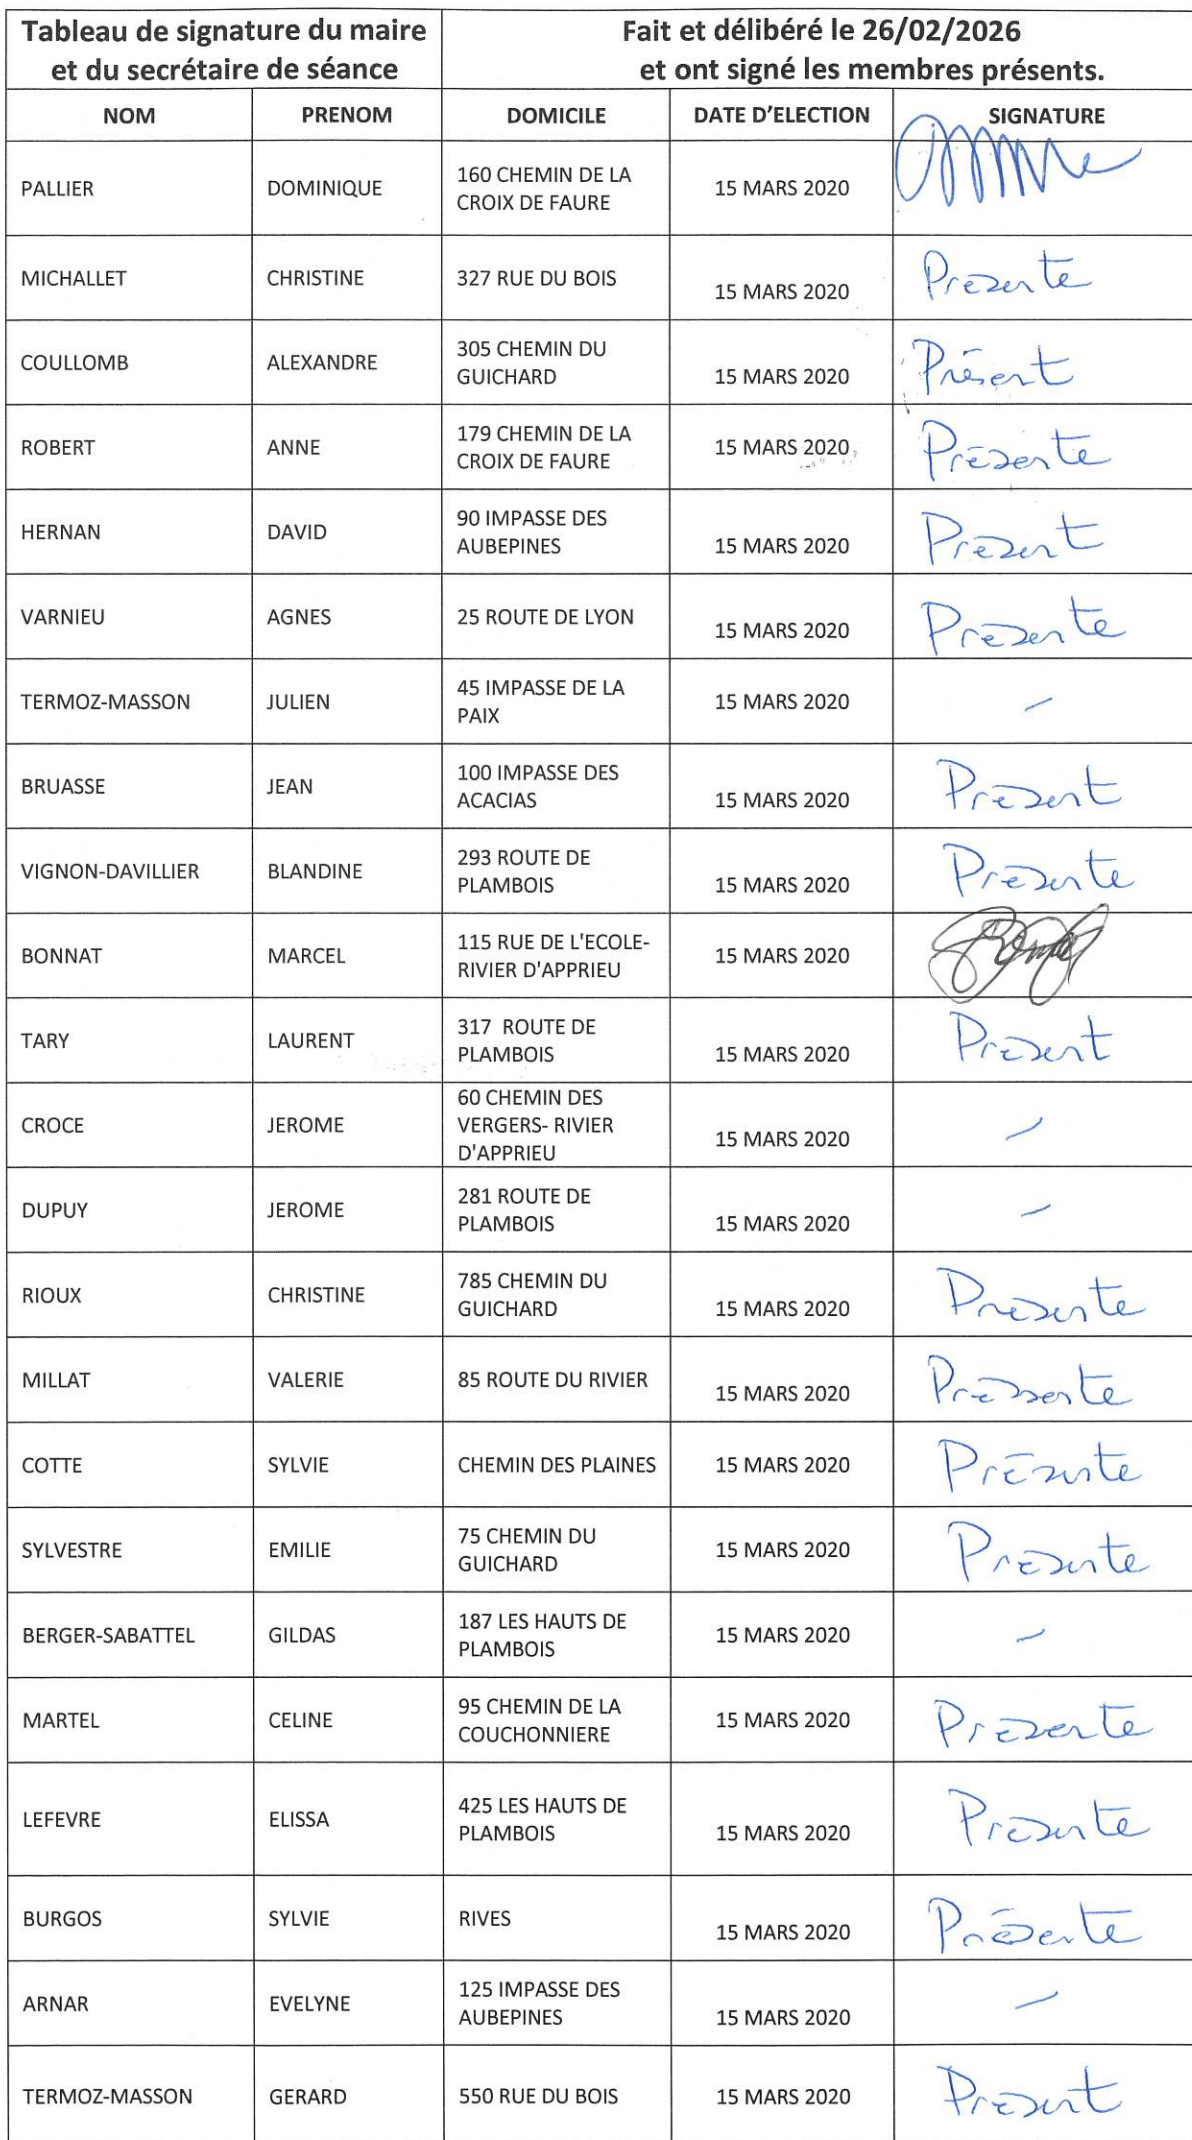 Tableau de signature du maire
et du secrétaire de séance
Fait et délibéré le 26/02/2026
et ont signé les membres présents.
NOM PRENOM DOMICILE DATE D'ELECTION SIGNATURE
PALLIER DOMINIQUE 160 CHEMIN DE LA
CROIX DE FAURE 15 MARS 2020
MICHALLET CHRISTINE 327 RUE DU BOIS 15 MARS 2020 Présente
COULLOMB ALEXANDRE 305 CHEMIN DU
GUICHARD 15 MARS 2020 Présent
ROBERT ANNE 179 CHEMIN DE LA
CROIX DE FAURE 15 MARS 2020 Présente
HERNAN DAVID 90 IMPASSE DES
AUBEPINES 15 MARS 2020 Présent
VARNIEU AGNES 25 ROUTE DE LYON 15 MARS 2020 Présente
TERMOZ-MASSON JULIEN 45 IMPASSE DE LA
PAIX 15 MARS 2020 -
BRUASSE JEAN 100 IMPASSE DES
ACACIAS 15 MARS 2020 Présent
VIGNON-DAVILLIER BLANDINE 293 ROUTE DE
PLAMBOIS 15 MARS 2020 Présente
BONNAT MARCEL 115 RUE DE L'ECOLE-
RIVIER D'APPRIEU 15 MARS 2020
TARY LAURENT 317 ROUTE DE
PLAMBOIS 15 MARS 2020 Présent
CROCE JEROME 60 CHEMIN DES
VERGERS- RIVIER
D'APPRIEU 15 MARS 2020 -
DUPUY JEROME 281 ROUTE DE
PLAMBOIS 15 MARS 2020 -
RIOUX CHRISTINE 785 CHEMIN DU
GUICHARD 15 MARS 2020 Présente
MILLAT VALERIE 85 ROUTE DU RIVIER 15 MARS 2020 Présente
COTTE SYLVIE CHEMIN DES PLAINES 15 MARS 2020 Présente
SYLVESTRE EMILIE 75 CHEMIN DU
GUICHARD 15 MARS 2020 Présente
BERGER-SABATTEL GILDAS 187 LES HAUTS DE
PLAMBOIS 15 MARS 2020 -
MARTEL CELINE 95 CHEMIN DE LA
COUCHONNIERE 15 MARS 2020 Présente
LEFEVRE ELISSA 425 LES HAUTS DE
PLAMBOIS 15 MARS 2020 Présente
BURGOS SYLVIE RIVES 15 MARS 2020 Présente
ARNAR EVELYNE 125 IMPASSE DES
AUBEPINES 15 MARS 2020 -
TERMOZ-MASSON GERARD 550 RUE DU BOIS 15 MARS 2020 Présent